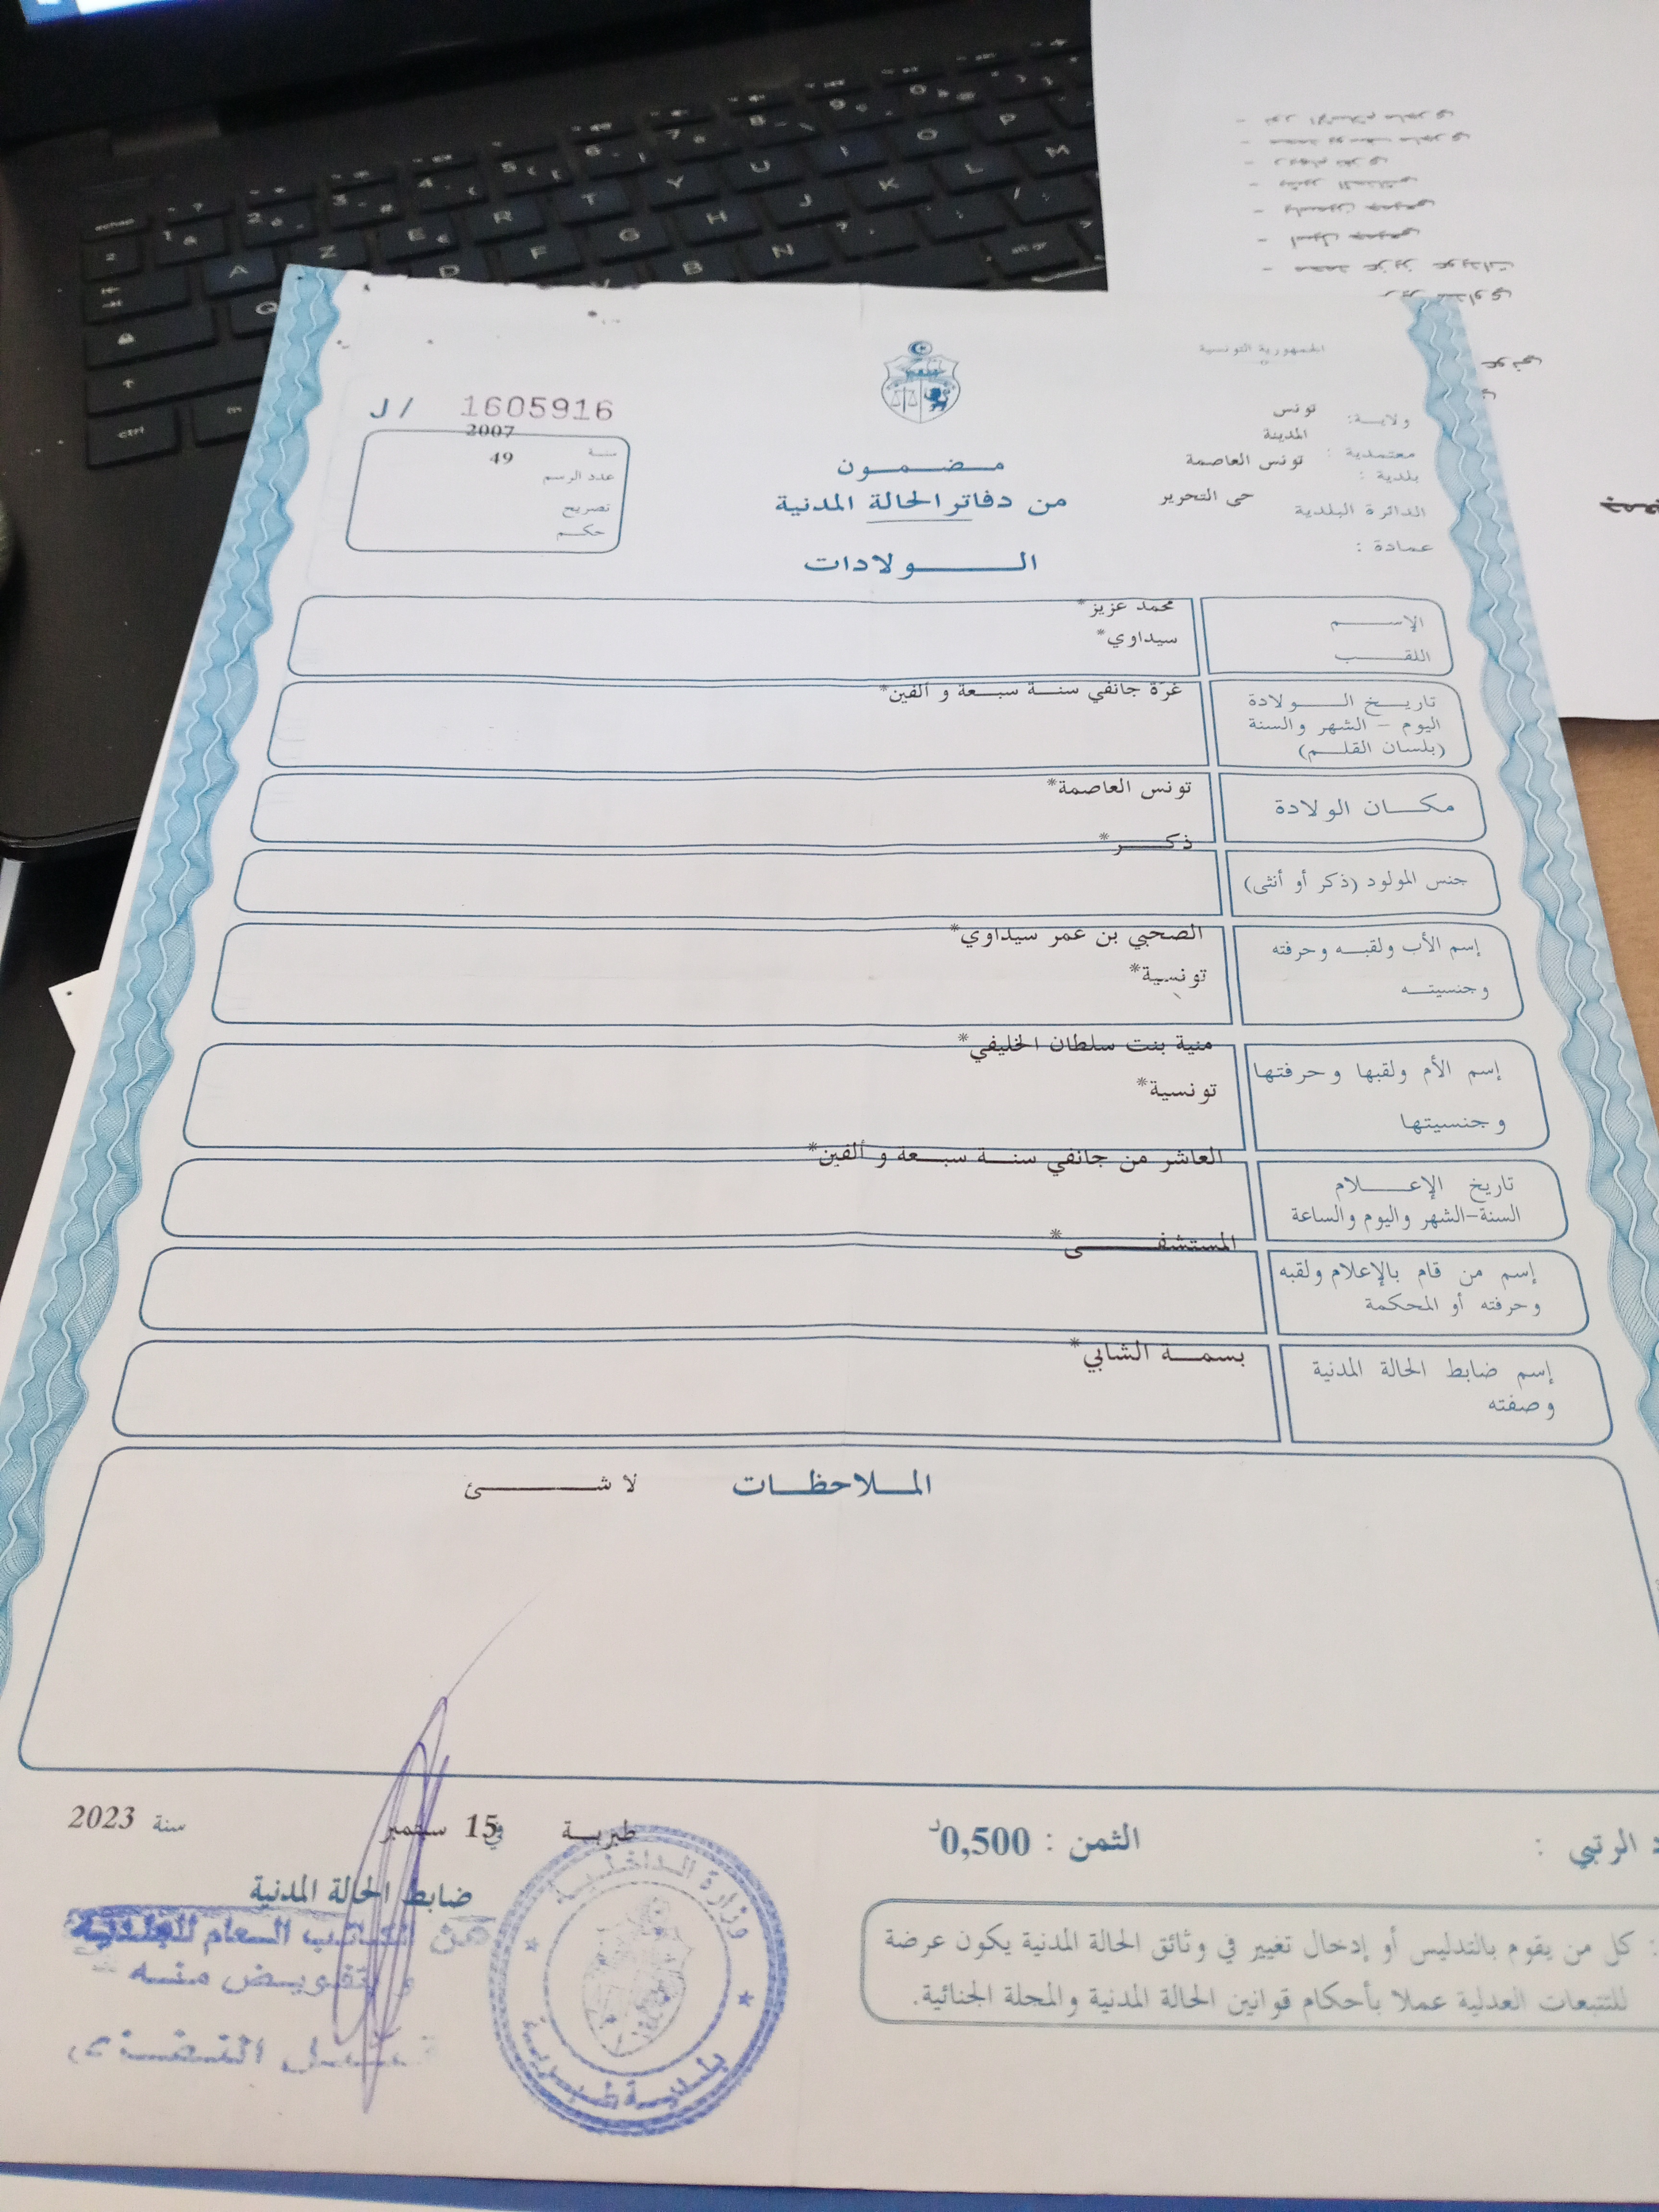 الجمهورية التونسية
J/ 1605916
ولاية: تونس
المدينة
معتمدية :
بلدية : تونس العاصمة
الدائرة البلدية حي التحرير
عمادة :
سنة 2007
عدد الرسم 49
تصريح
حكم
مضمون
من دفاتر الحالة المدنية
الولادات
الإسم محمد عزيز*
اللقب سيداوي*
تاريخ الولادة غرّة جانفي سنة سبعة و ألفين*
اليوم - الشهر والسنة
(بلسان القلم)
مكان الولادة تونس العاصمة*
ذكر*
جنس المولود (ذكر أو أنثى)
إسم الأب ولقبه وحرفته الصحبي بن عمر سيداوي*
وجنسيته تونسية*
منية بنت سلطان الخليفي*
إسم الأم ولقبها وحرفتها
تونسية*
وجنسيتها
العاشر من جانفي سنة سبعة و ألفين*
تاريخ الإعلام
السنة-الشهر واليوم والساعة
المستشفى*
إسم من قام بالإعلام ولقبه
وحرفته أو المحكمة
إسم ضابط الحالة المدنية بسمة الشابي*
وصفته
الملاحظات لا شئ
طبربة في 15 سبتمبر سنة 2023
ضابط الحالة المدنية
عن الكاتب العام للبلدية
و بتفويض منه
الرتبي :
الثمن : 0,500د
كل من يقوم بالتدليس أو إدخال تغيير في وثائق الحالة المدنية يكون عرضة
للتتبعات العدلية عملا بأحكام قوانين الحالة المدنية والمجلة الجنائية.
وزارة الداخلية
بلدية طبربة